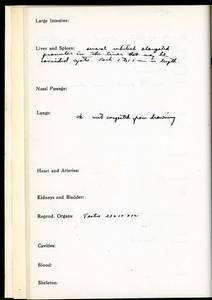 Large Intestine:
Liver and Spleen: several whitish elongated
granules in the liver that may be
coccidial cysts. Each
in length
Nasal Passage:
Lungs: ok not congested from drowning
Heart and Arteries:
Kidneys and Bladder:
Reprod. Organs: Testis
Cavities:
Blood:
Skeleton: